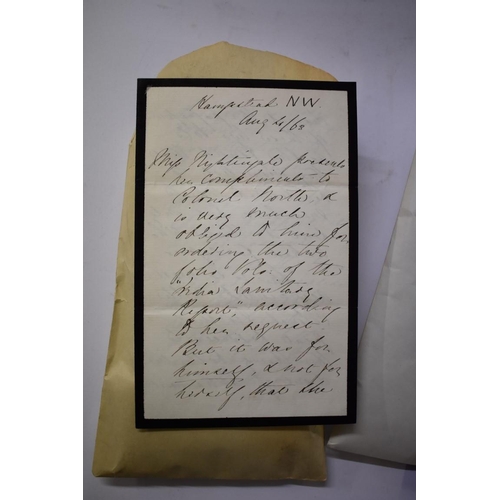 Hampstead NW.
Aug 20/63
Miss Nightingale presents
her compliments to
Colonel North, &
is very much
obliged to him for
ordering the two
folio Vols. of the
"India Sanitary
Report", according
to her request
But it was for
himself, & not for
herself, that she